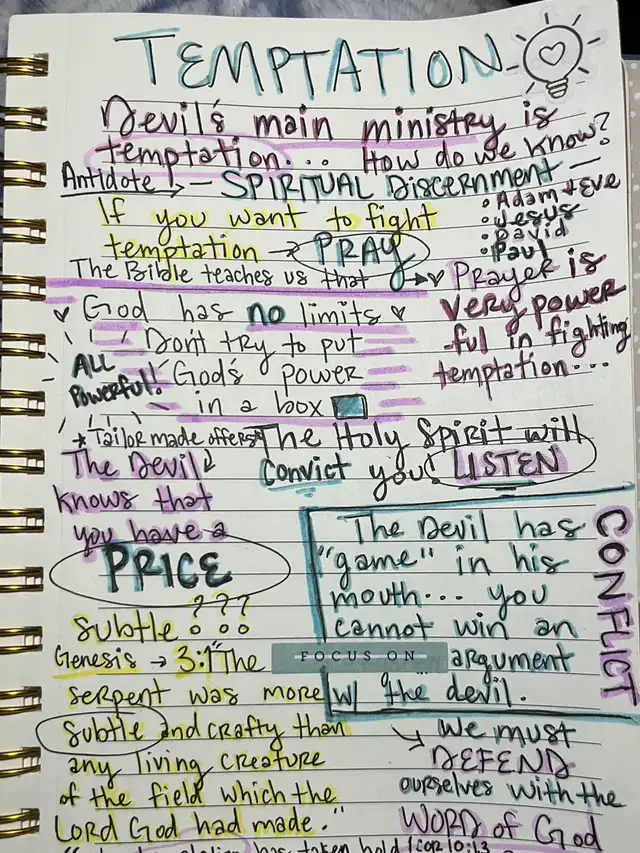 TEMPTATION
Devil's main ministry is
temptation... How do we know?
Antidote → — SPIRITUAL DISCERNMENT —
• Adam + Eve
• Jesus
• David
• Paul
If you want to fight
temptation → PRAY
The Bible teaches us that → ♥ Prayer is
very power
-ful in fighting
temptation...
♥ God has no limits ♥
Don't try to put
God's power
in a box
ALL
Powerful!
* Tailor made offers*
The Devil
knows that
you have a
PRICE
The Holy Spirit will
convict you! LISTEN
The Devil has
"game" in his
mouth... you
cannot win an
argument
w/ the devil.
CONFLICT
FOCUS ON
subtle ???
Genesis → 3:1 "The
serpent was more
subtle and crafty than
any living creature
of the field which the
LORD God had made."
we must
DEFEND
ourselves with the
WORD of God
has taken hold 1 Cor 10:13